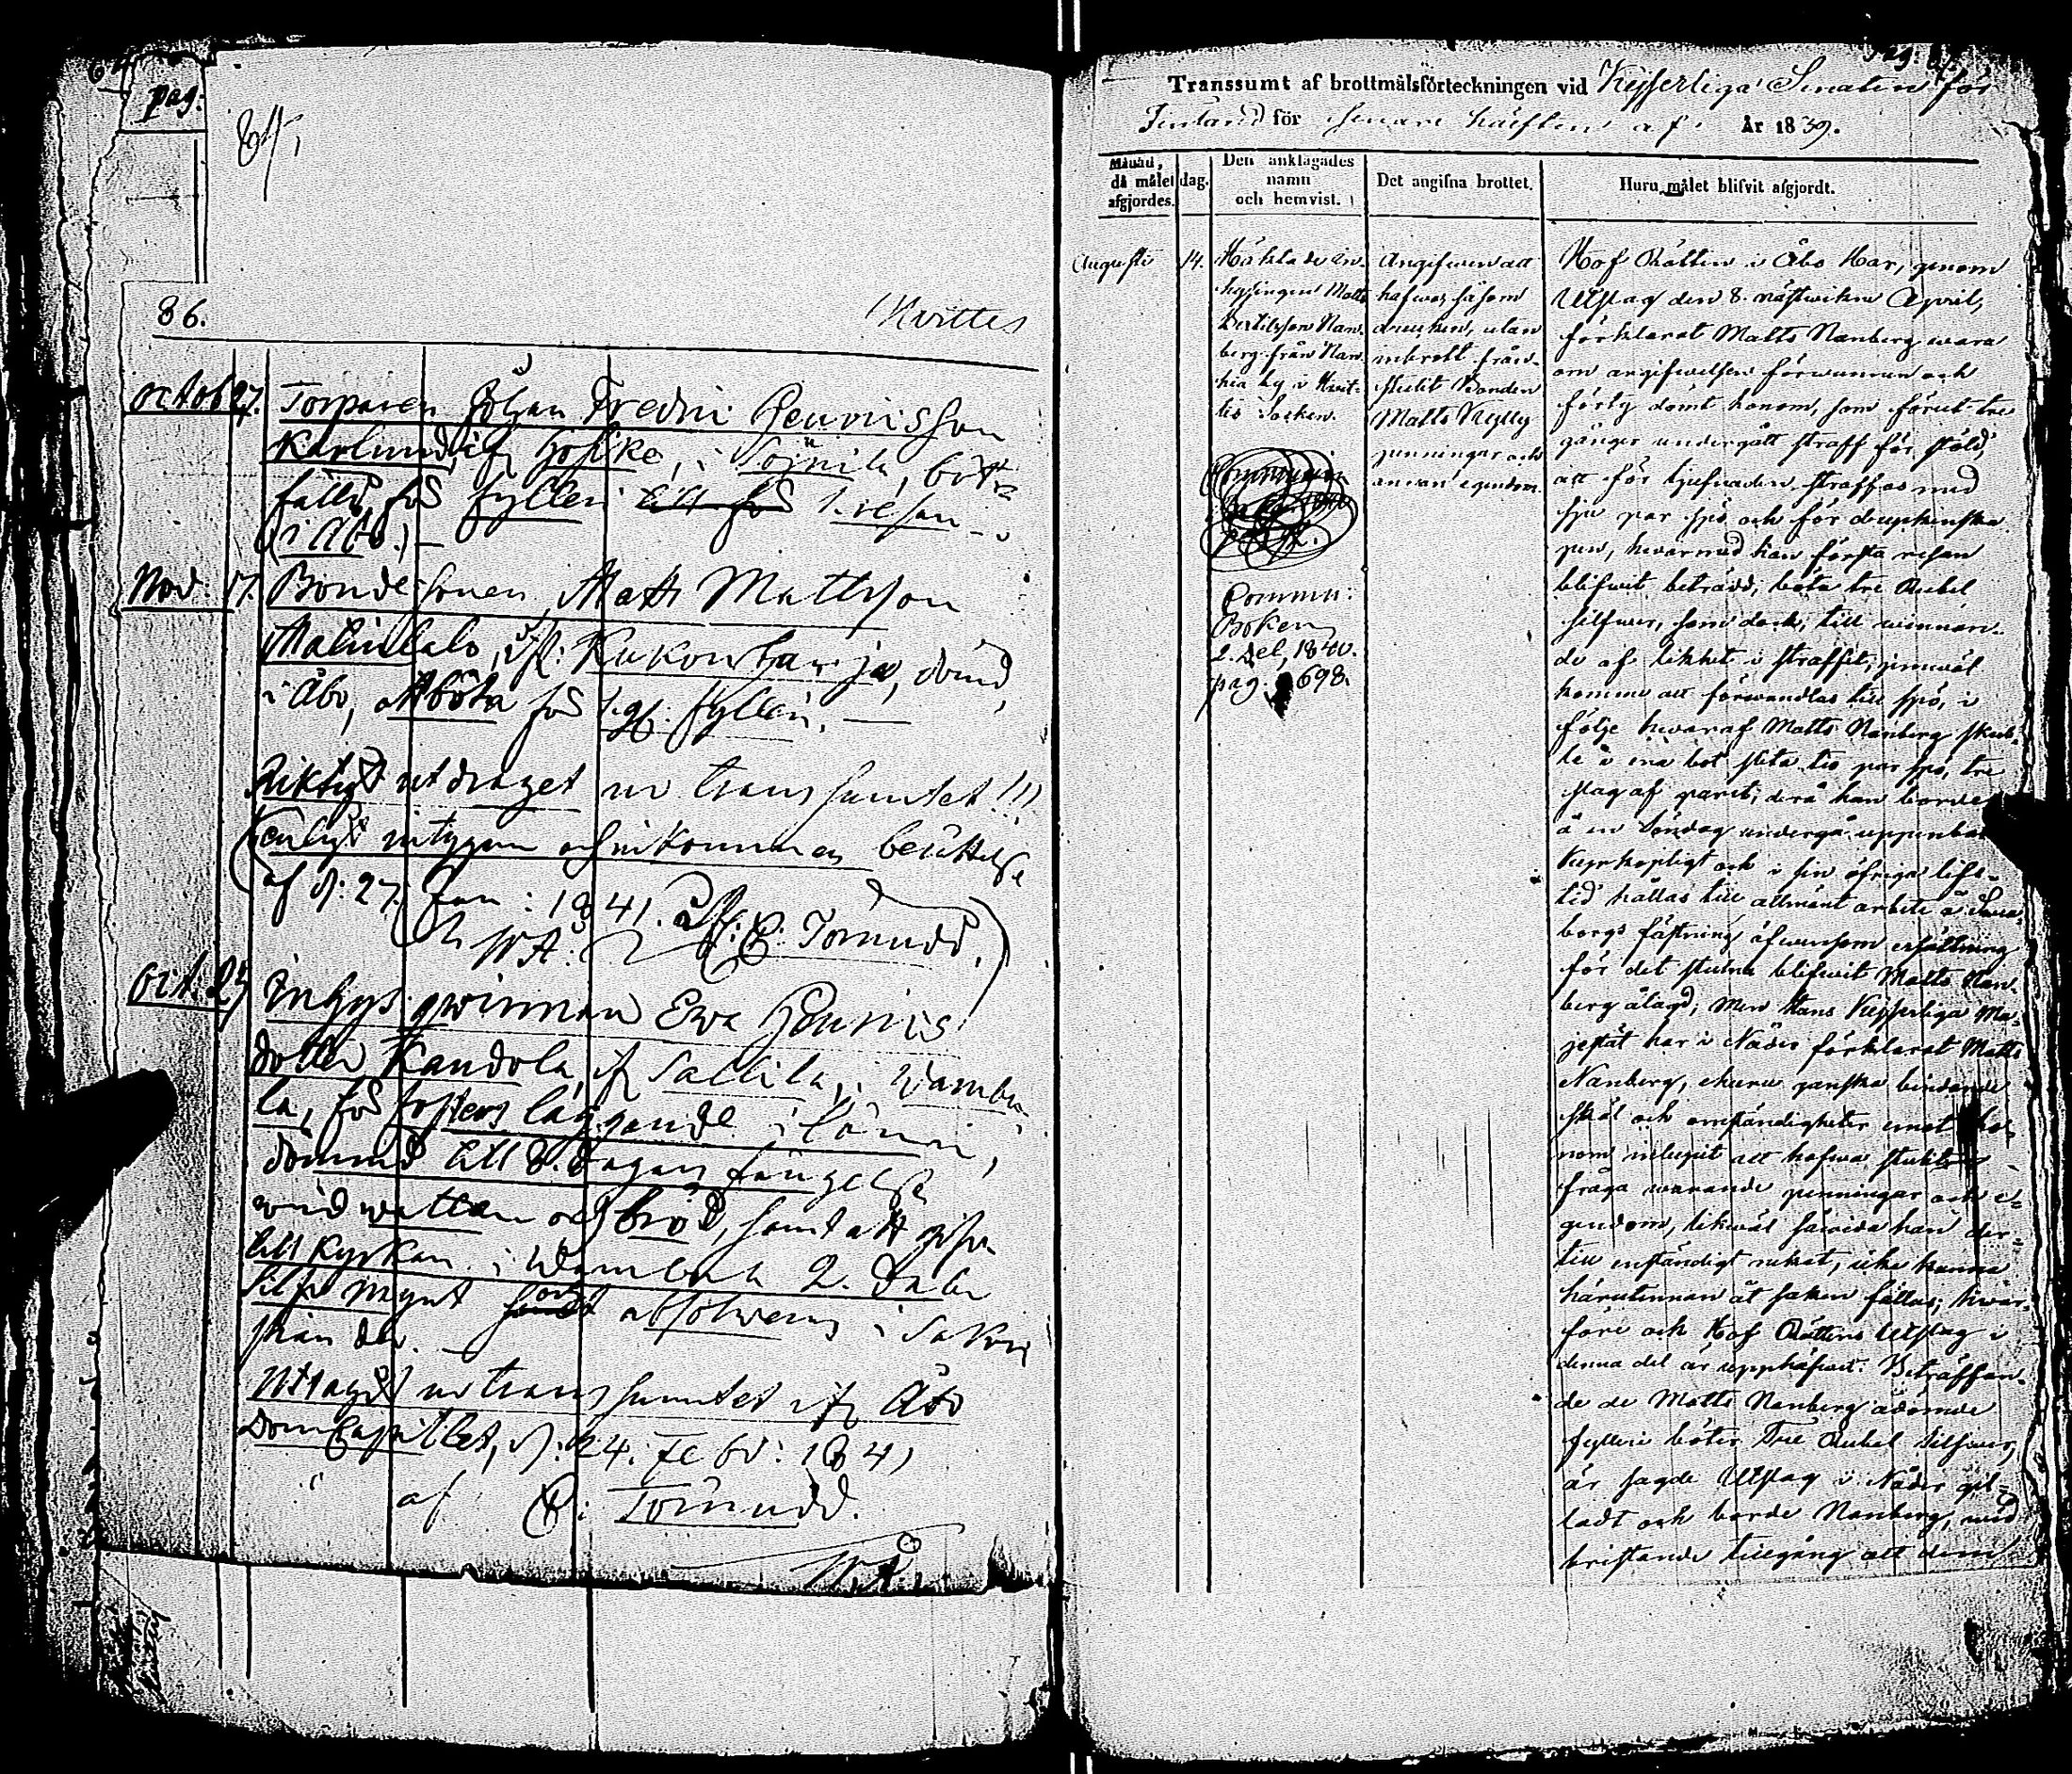 64
pag:
84,
86. Hvittes
octob 27. Torparen Johan Fredri: Henricsson
Karlund, ifr Hoske, i Loimila, böt-
fälld, för fylleri till för 1. resan -
(i Åbo.) —
Nov: 17. Bondesonen Matts Mattsson
Mahulalo, ifr: Kukonharja, dömd,
i Åbo, att böta för 1. gg: fylleri. —
Riktigt utdraget ur transsumtet !!!
(enligt intygan och inkommen berättelse
af d: 27. Jan: 1841. af: C: Tömudd.)
oct. 27 Inhys. qvinnan Ewa Henrics
dotter Kandola, if Sallila, i Wambu-
la, för fosters läggande i lönn,
dömmd till 8. dagars fängelse
wid watten och bröd, samt att gifva
till Kyrkan i Wambula 2. daler
Silfr mynt samt och absolveras i Sakri
stian der. —
Uttagit ur transsumtet ifr Åbo
DomCapitlet, d: 24. Febr: 1841
af C: Tömudd.
Transsumt af brottmålsförteckningen vid Kejserliga Senaten för
Finland för senare hälften af År 1839.
Månad, då målet afgjordes. dag. Den anklagades namn och hemvist. Det angifna brottet. Huru målet blifvit afgjordt.
Augusti 14.
Häktade in-
hysingen Matts
Bertilsson Nan-
berg från Nan-
hia by i Hvit-
tis Socken.
Commun:
Boken
2. Del, 1840.
pag. 698.
Angifwen att
hafwa såsom
drucken, utan
inbrott från-
stulit Bonden
Matts Kylly
penningar och
annan egendom.
Hof Rätten i Åbo Har, genom
Utslag den 8. nästwikne April,
förklarat Matts Nanberg wara
om angifwelsen förwunnen och
förty dömt honom, som förut tre
gånger undergått straff för stöld,
att för tjufnaden straffas med
sju par spö och för dryckenska-
pen, hwarmed han första resan
blifwit beträdd, böta tre Rubel
silfwer, som dock, till winnan-
de af likhet i straffet, jemwäl
komme att förwandlas till spö, i
följe hwaraf Matts Nanberg skul-
le i ena bot slita tio par spö, tre
slag af paret; derå han borde
å en Söndag undergå uppenbar
Kyrkopligt och i sin öfriga lifs-
tid hållas till allmänt arbete å Swea-
borgs fästning äfwensom ersättning
för det stulna blifwit Matts Nan-
berg ålagd; men Hans Kejserliga Ma-
jestät har i Nåder förklarat Matts
Nanberg, ehuru ganska bindande
skäl och omständigheter emot ho-
nom inlupit att hafwa stulit i
fråga warande penningar och e-
gendom, likwäl såwida han der-
till enständigt nekat, icke kunna
härutinnan åt saken fällas; hwar-
före och Hof Rättens Utslag i
denna del är upphäfwit. Beträffan-
de de Matts Nanberg ådömde
fylleri böter Tre Rubel silfwer,
är sagde Utslag i Nåder gil-
ladt och borde Nanberg, wid
bristande tillgång att dem